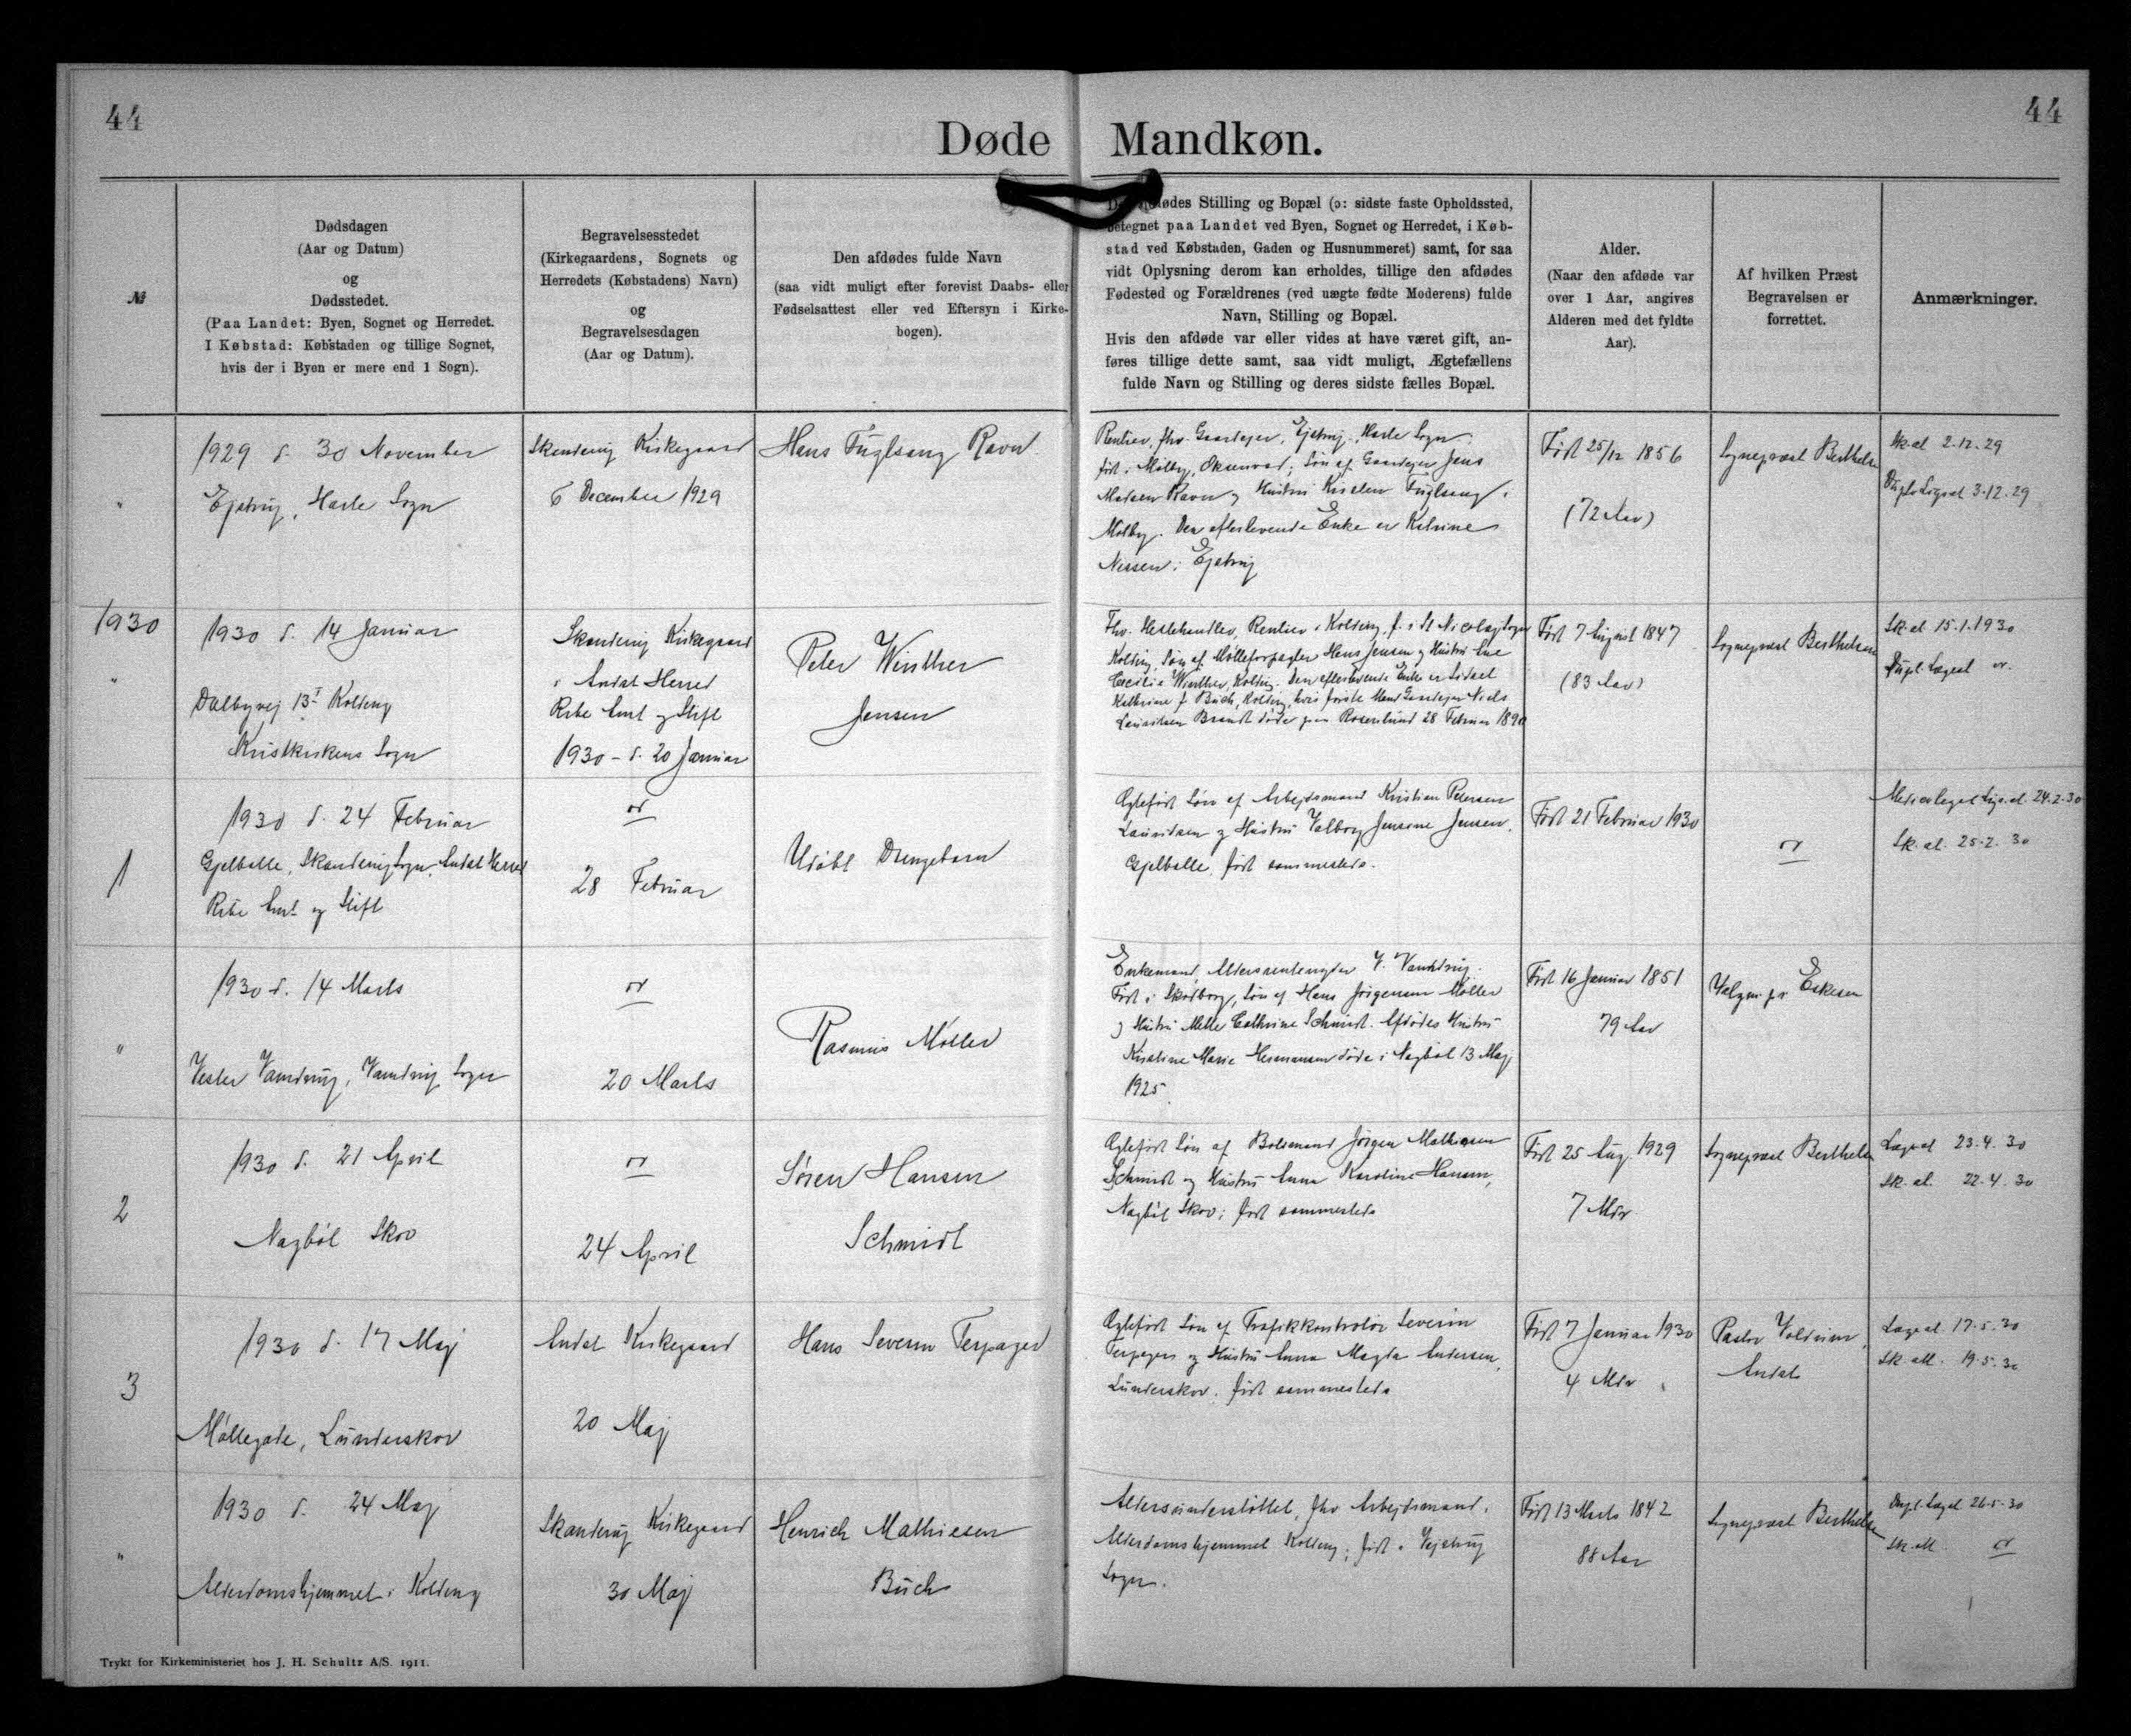 44
44
Døde Mandkøn.
№
Dødsdagen
(Aar og Datum)
og
Dødsstedet.
(Paa Landet: Byen, Sognet og Herredet.
I Købstad: Købstaden og tillige Sognet,
hvis der i Byen er mere end 1 Sogn).
Begravelsesstedet
(Kirkegaardens, Sognets og
Herredets (Købstadens) Navn)
og
Begravelsesdagen
(Aar og Datum).
Den afdødes fulde Navn
(saa vidt muligt efter forevist Daabs- eller
Fødselsattest eller ved Eftersyn i Kirke-
bogen).
Stilling og Bopæl (ɔ: sidste faste Opholdssted,
betegnet paa Landet ved Byen, Sognet og Herredet, i Køb-
stad ved Købstaden, Gaden og Husnummeret) samt, for saa
vidt Oplysning derom kan erholdes, tillige den afdødes
Fødested og Forældrenes (ved uægte fødte Moderens) fulde
Navn, Stilling og Bopæl.
Hvis den afdøde var eller vides at have været gift, an-
føres tillige dette samt, saa vidt muligt, Ægtefællens
fulde Navn og Stilling og deres sidste fælles Bopæl.
Alder.
(Naar den afdøde var
over 1 Aar, angives
Alderen med det fyldte
Aar).
Af hvilken Præst
Begravelsen er
forrettet.
Anmærkninger.
"
1929 d. 30 November
Ejstrup, Harte Sogn
Skanderup Kirkegaard
6 December 1929
Hans Fuglsang Ravn
Rentier, fhv. Gaardejer, Ejstrup, Harte Sogn.
født i Mølby, Oksenvad; Søn af Gaardejer Jens
Madsen Ravn og Hustru Kirsten Fuglsang i
Mølby. Den efterlevende Enke er Katrine
Nissen i Ejstrup
Født 25/12 1856
(72 Aar)
Sognepræst Berthelsen
Sk. at 2.12.29
3.12.29
1930
"
1930 d. 14 Januar
Dalbyvej 13 I Kolding
Kristkirkens Sogn
Skanderup Kirkegaard
i Andst Herred
Ribe Amt og Stift
1930 - d. 20 Januar
Peter Winther
Jensen
Fhv. Hestehandler, Rentier i Kolding, f. i St Nicolaj Sogn
Kolding, Søn af Mølleforpagter Hans Jensen og Hustru Ane
Cecilie Winther, Kolding. Den efterlevende Enke er Sidsel
Kathrine f. Buch, Kolding, hvis første Mand Gaardejer Niels
Lauridsen Brandt døde paa Rosenlund 28 Februar 1890
Født 7 August 1847
(83 Aar)
Sognepræst Berthelsen
Sk. at 15.1.1930
Dupl. Lægeat
1
1930 d. 24 Februar
Gjelballe, Skanderup Sogn, Andst Herred
Ribe Amt og Stift
28 Februar
Udøbt Drengebarn
Ægtefødt Søn af Arbejdsmand Kristian Petersen
Lauridsen og Hustru Valborg Jensine Jensen.
Gjelballe, født sammesteds.
Født 21 Februar 1930
24.2.30
Sk. at. 25.2.30
"
1930 d. 14 Marts
Vester Vamdrup, Vamdrup Sogn
20 Marts
Rasmus Møller
Enkemand, Aldersrentenyder V. Vamdrup.
Født i Skodborg, Søn af Hans Jørgensen Møller
og Hustru Mette Cathrine Schmidt. Afdødes Hustru
Kirstine Marie Hermansen døde i Nagbøl 13 Maj
1925.
Født 16 Januar 1851
79 Aar
Valgm. pr. Eskesen
2
1930 d. 21 April
Nagbøl Skov
24 April
Søren Hansen
Schmidt
Ægtefødt Søn af Bolsmand Jørgen Mathiasen
Schmidt og Hustru Anna Karoline Hansen,
Nagbøl Skov; født sammesteds
Født 25 Aug. 1929
7 Mdr
Sognepræst Berthelsen
Lægeat 23.4.30
Sk. at. 22.4.30
3
1930 d. 17 Maj
Møllegade, Lunderskov
Andst Kirkegaard
20 Maj
Hans Severin Terpager
Ægtefødt Søn af Trafikkontrolør Severin
Terpager og Hustru Anna Magda Andersen,
Lunderskov. født sammesteds
Født 7 Januar 1930
4 Mdr
Pastor Voldum,
Andst
Lægeat. 17.5.30
Sk. att. 19.5.30
"
1930 d. 24 Maj
Alderdomshjemmet i Kolding
Skanderup Kirkegaard
30 Maj
Henrich Mathiesen
Buch
Aldersunderstøttet, fhv Arbejdsmand,
Alderdomshjemmet Kolding; født i Vejstrup
Sogn.
Født 13 Marts 1842
88 Aar
Sognepræst Berthelsen
Dupl. Lægeat 26.5.30
Sk. att.
Trykt for Kirkeministeriet hos J. H. Schultz A/S. 1911.